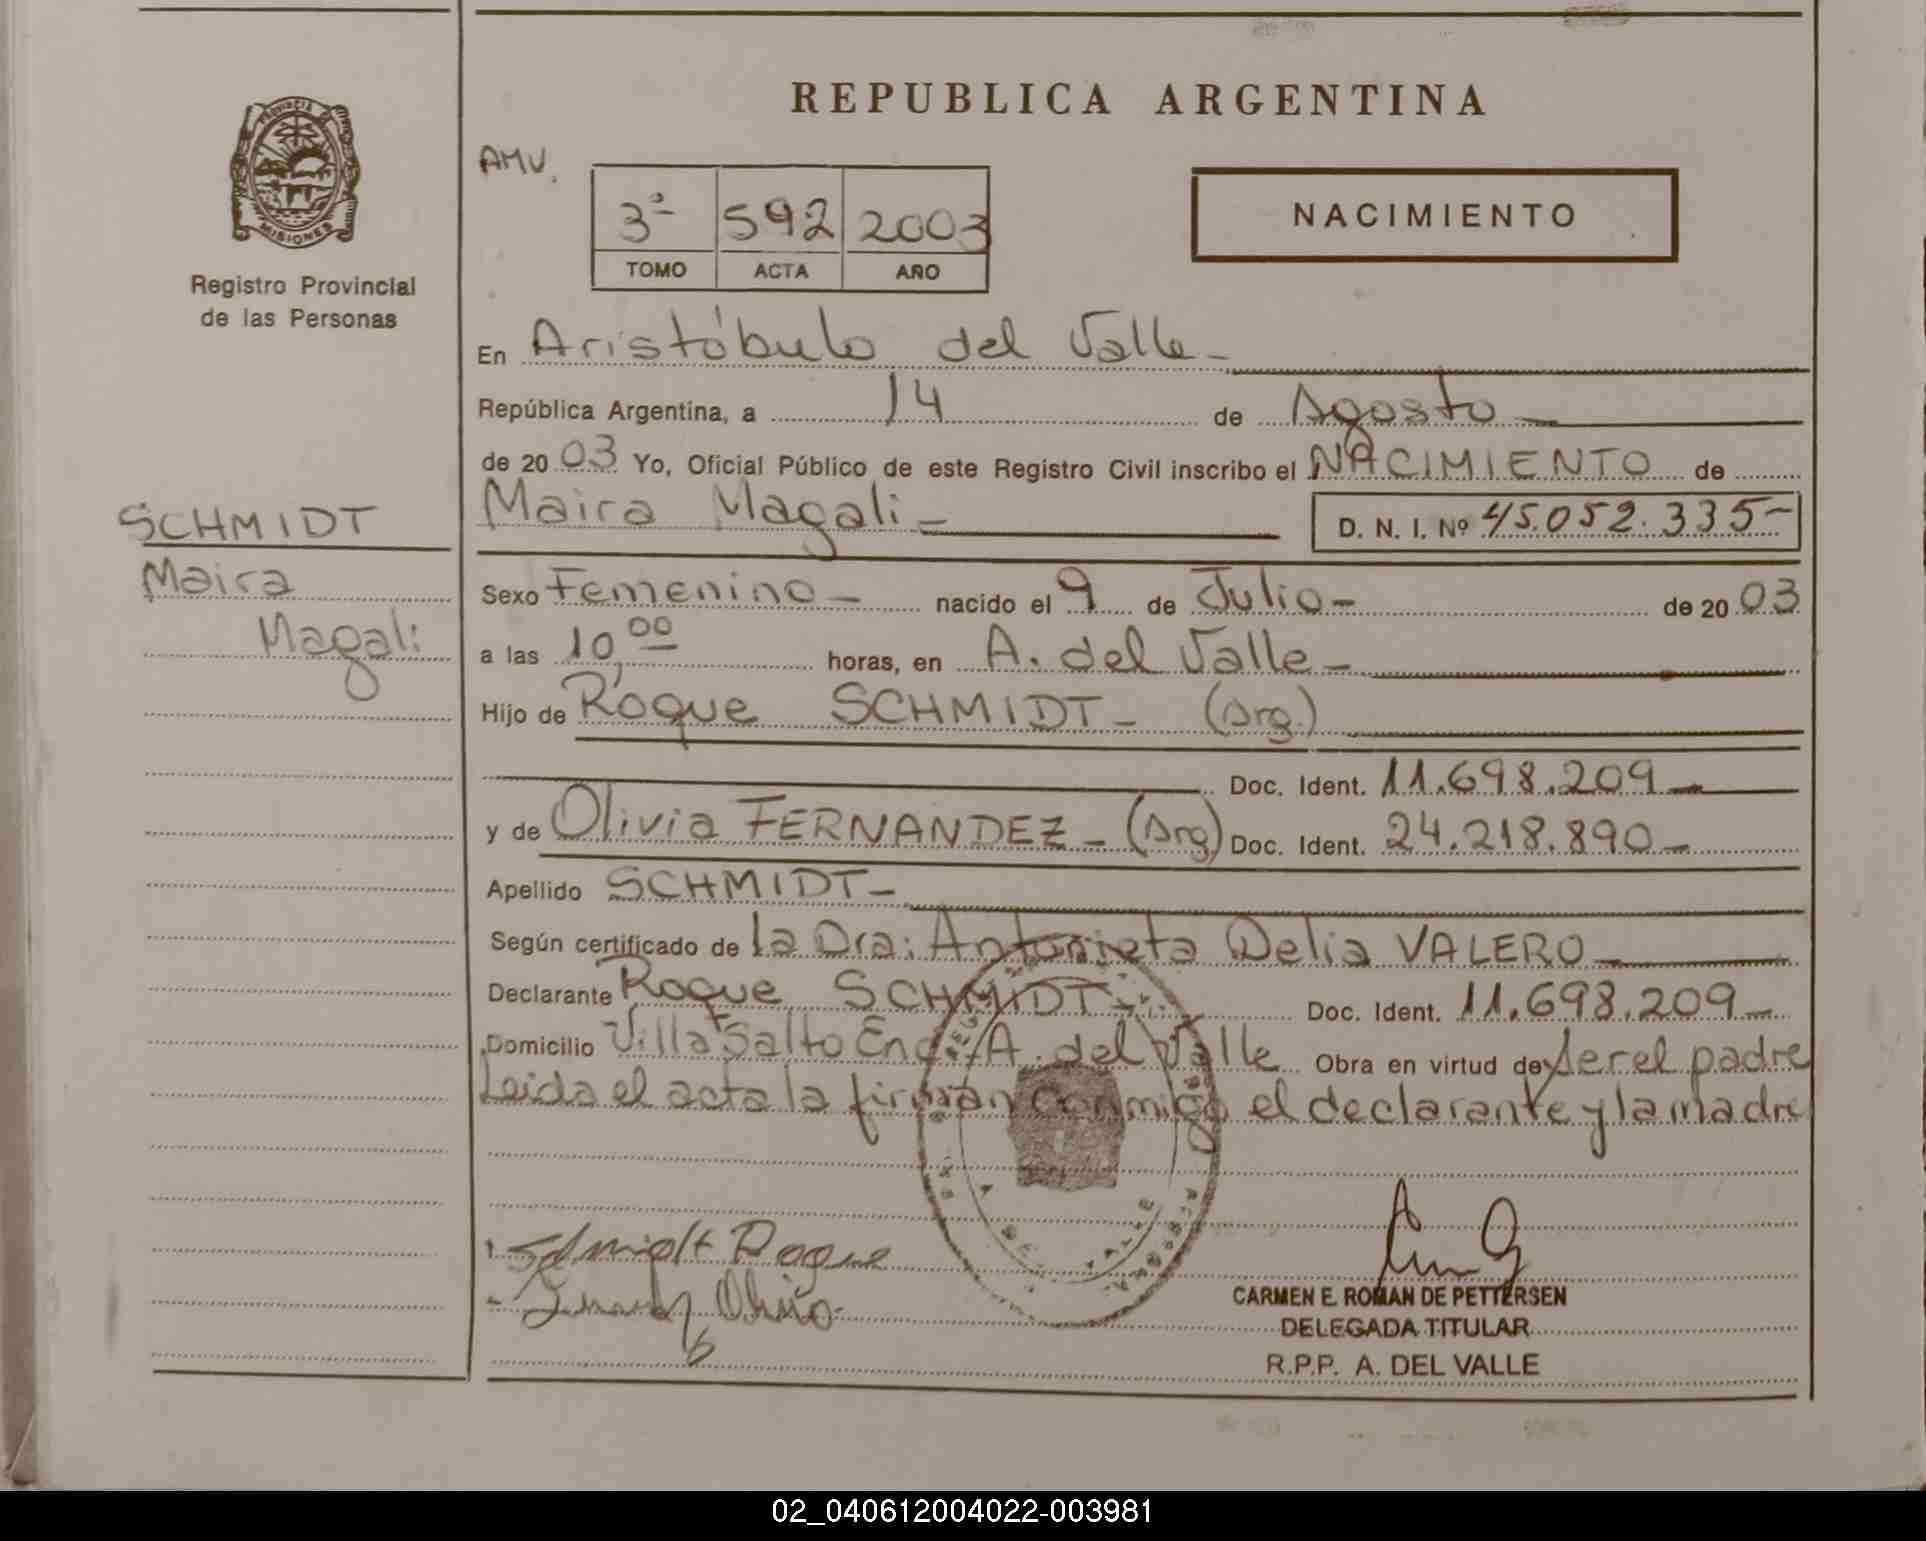 REPUBLICA ARGENTINA
PROVINCIA DE
MISIONES
Registro Provincial
de las Personas
AMV.
3º 592 2003
TOMO ACTA AÑO
NACIMIENTO
En Aristóbulo del Valle
República Argentina, a 14 de Agosto
de 2003 Yo, Oficial Público de este Registro Civil inscribo el NACIMIENTO de
Maira Magali D. N. I. Nº 45.052.335
SCHMIDT
Maira
Magali
Sexo Femenino nacido el 9 de Julio de 2003
a las 10,00 horas, en A. del Valle
Hijo de Roque SCHMIDT (Arg.)
Doc. Ident. 11.698.209
y de Olivia FERNANDEZ (Arg) Doc. Ident. 24.218.890
Apellido SCHMIDT
Según certificado de la Dra: Antonieta Delia VALERO
Declarante Roque SCHMIDT Doc. Ident. 11.698.209
Domicilio Villa Salto Enc. A. del Valle Obra en virtud de ser el padre
Leida el acta la firman conmigo el declarante y la madre
Schmidt Roque
Olivia
CARMEN E. ROMAN DE PETTERSEN
DELEGADA TITULAR
R.P.P. A. DEL VALLE
02_040612004022-003981